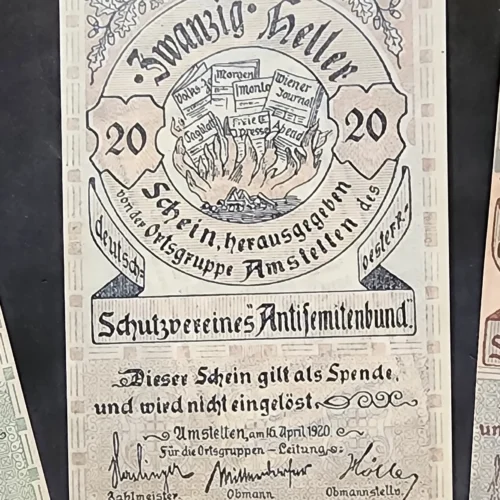 Zwanzig Heller
Volks-
Morgen
Monta
Wiener
Journal
Tagblatt
Freie
presse
Abend
20
20
Schein, herausgegeben
von der Ortsgruppe Amstetten des
deutsch-
oesterr.-
Schutzvereines "Antisemitenbund".
Dieser Schein gilt als Spende,
und wird nicht eingelöst.
Amstetten, am 16. April 1920.
Für die Ortsgruppen-Leitung:
Mitterdorfer
Zahlmeister
Obmann
Obmannstellv.